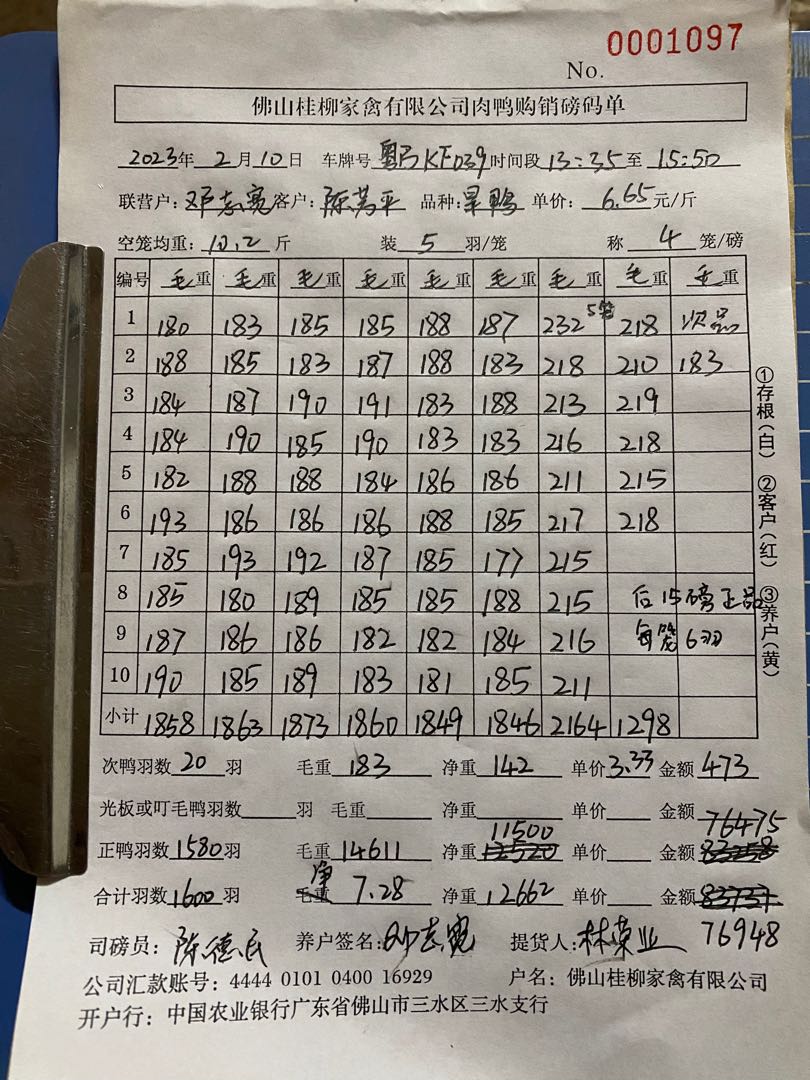 0001097
No.
佛山桂柳家禽有限公司肉鸭购销磅码单
2023年 2月10日 车牌号 粤JKF039 时间段 13:35至 15:50
联营户: 邓志宽 客户: 陈芳平 品种: 旱鸭 单价: 6.65元/斤
空笼均重: 10.2斤 装 5 羽/笼 称 4 笼/磅
编号 毛重 毛重 毛重 毛重 毛重 毛重 毛重 毛重 毛重
1 180 183 185 185 188 187 232 5笼 218 次品
2 188 185 183 187 188 183 218 210 183
3 184 187 190 191 183 188 213 219
4 184 190 185 190 183 183 216 218
5 182 188 188 184 186 186 211 215
6 193 186 186 186 188 185 217 218
7 185 193 192 187 185 177 215
8 185 180 189 185 185 188 215 后15磅正品
9 187 186 186 182 182 184 216 每笼6羽
10 190 185 189 183 181 185 211
小计 1858 1863 1873 1860 1849 1846 2164 1298
①存根(白) ②客户(红) ③养户(黄)
次鸭羽数 20 羽 毛重 183 净重 142 单价3.33 金额 473
光板或叮毛鸭羽数 羽 毛重 净重 单价 金额
11500 76475
正鸭羽数1580羽 毛重14611 净重12520 单价 金额83258
净
合计羽数1600羽 毛重 7.28 净重 12662 金额83731
司磅员: 陈德民 养户签名: 邓志宽 提货人: 林荣业 76948
公司汇款账号: 4444 0101 0400 16929 户名: 佛山桂柳家禽有限公司
开户行: 中国农业银行广东省佛山市三水区三水支行